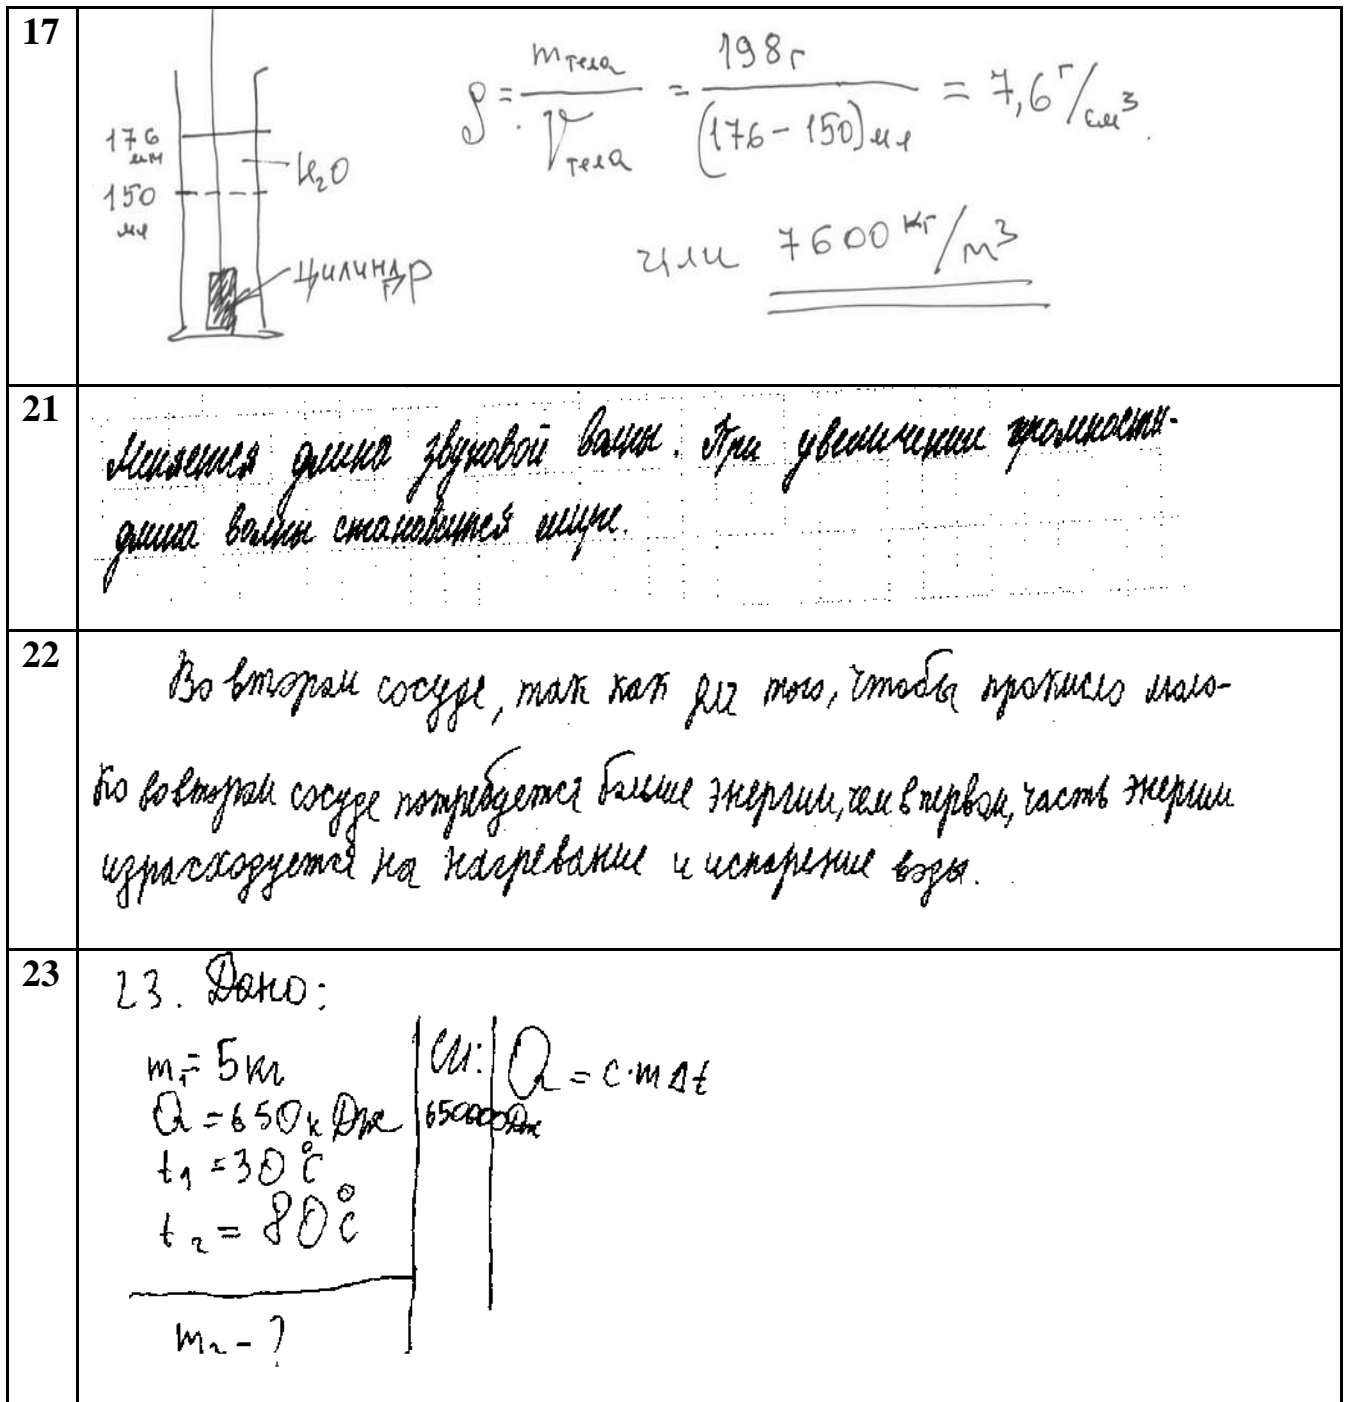 17
176
мл
150
мл
H₂O
цилиндр
ρ = m тела / V тела = 198 г / (176 - 150) мл = 7,6 г/см³.
или 7600 кг/м³
21
Меняется длина звуковой волны. При увеличении громкости-
длина волны становится шире.
22
Во втором сосуде, так как для того, чтобы прокисло моло-
ко во втором сосуде потребуется больше энергии, чем в первом, часть энергии
израсходуется на нагревание и испарение воды.
23
23. Дано:
m₁ = 5 кг
Q = 650 к Дж
t₁ = 30 °C
t₂ = 80 °C
m₂ - ?
СИ:
650000 Дж
Q = c·m Δt